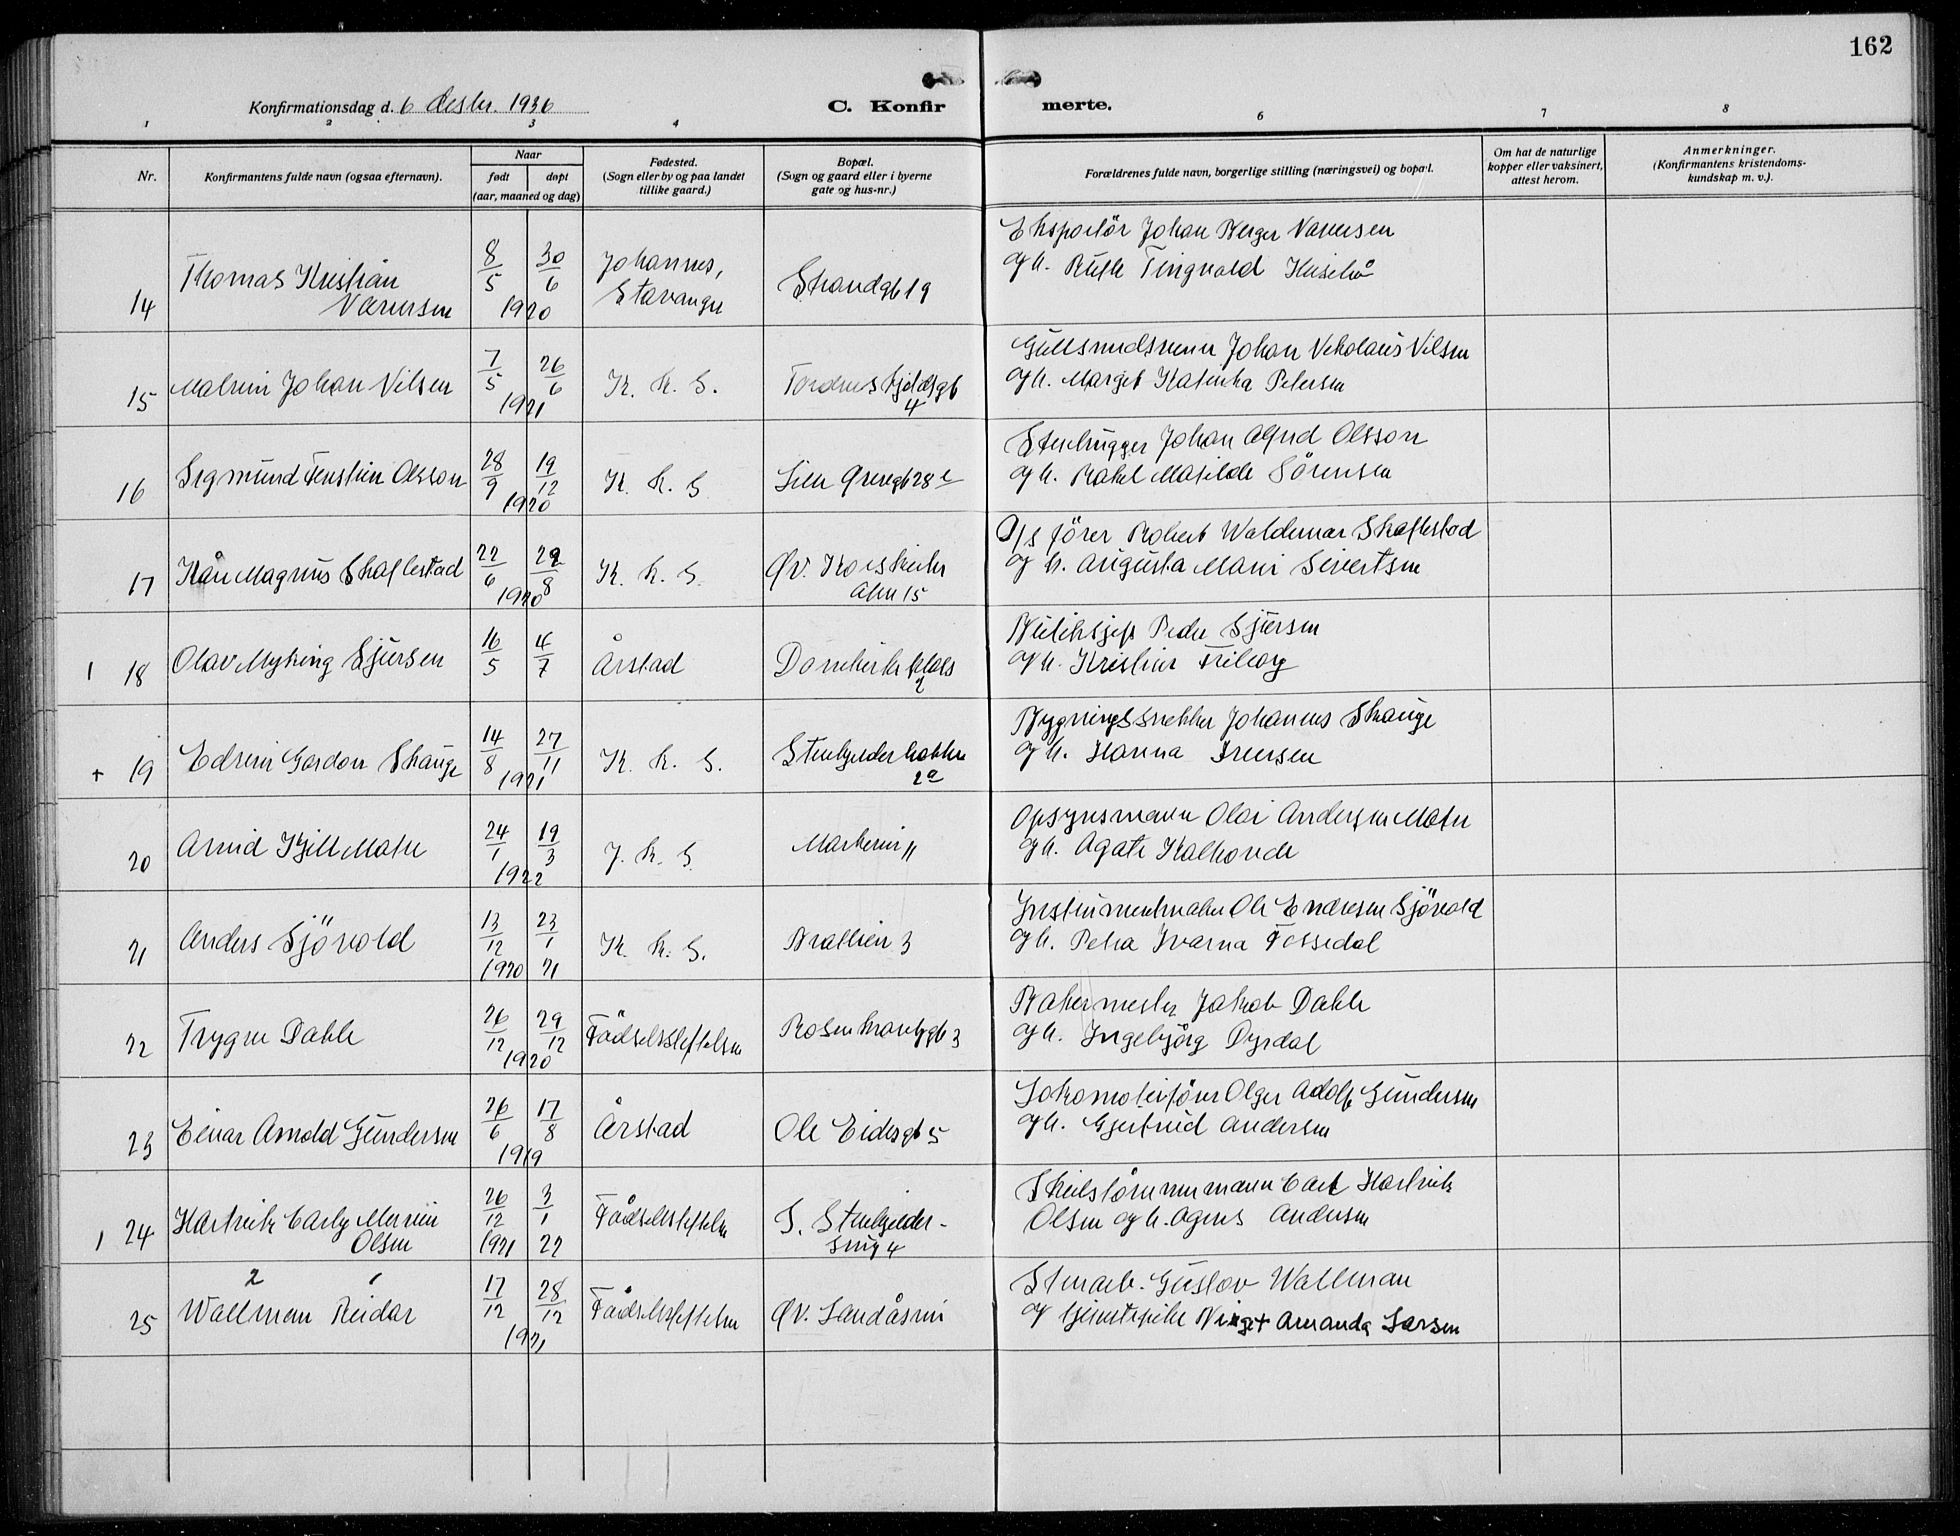 162
Konfirmationsdag d. 6 desbr. 1936
C. Konfir merte.
1 2 3 4 6 7 8
Nr.
Konfirmantens fulde navn (ogsaa efternavn).
Naar
født døpt
(aar, maaned og dag)
Fødested.
(Sogn eller by og paa landet
tillike gaard.)
Bopæl.
(Sogn og gaard eller i byerne
gate og hus-nr.)
Forældrenes fulde navn, borgerlige stilling (næringsvei) og bopæl.
Om hat de naturlige
kopper eller vaksinert,
attest herom.
Anmerkninger.
(Konfirmantens kristendoms-
kundskap m. v.).
14 Thomas Kristian 8/5 30/6 Johannes, Strandgt 19 Ekspeditør Johan Berger
1920 Stavanger og h. Ruth Tingvold
15 Johan Nilsen 7/5 26/6 K. K. S. Tordenskjoldsgt Gullsmedsvenn Johan Nikolaus Nilsen
1921 4 og h. Marget Katinka Petersen
16 Sigmund Olsson 28/9 19/12 K. K. S. 28 c Stenhugger Johan Alfred Olsson
1920 og h. Rakel Matilde Sörensen
17 Kåre Magnus Skaftestad 22/6 29/8 K. K. S. Øv. Korskirke Robert Waldemar Skaftestad
1920 alm 15 og h. Augusta Marie Sivertsen
1 18 Olav Myking Sjursen 16/5 4/7 Årstad Domkirkeplass Butikksjef Peder Sjursen
2 og h. Kristine
+ 19 Gordon Skauge 14/8 27/11 K. K. S. Stenkjelderbakken Bygningssnekker Johannes Skauge
1921 2a og h. Hanna Iversen
20 Arvid Kjell Matre 24/1 19/3 J. K. S. Markeveien 11 Opsynsmann Olai Andersen Matre
1922 og h. Agate
21 Anders Sjövold 13/12 23/1 K. K. S. Bratlien 3 Instrumentmaker Ole Endresen Sjövold
1920 21 og h. Petra Ivarna Fossedal
22 Trygve Dahle 26/12 29/12 Födselsstiftelsen Rosenkrantzgt 3 Bakermester Jakob Dahle
1920 og h. Ingebjörg Dyrdal
23 Einar Arnold Gundersen 26/6 17/8 Årstad Ole Eidesgt 5 Lokomotivförer Olger Adolf Gundersen
1919 og h. Gjertrud Andersen
1 24 Hartvik 26/12 3/1 Födselsstiftelsen S. Stenkjelder- Skibstömmermann Carl Hartvik
Olsen 1921 22 smug 4 Olsen og h. Agnes Andersen
2 1
25 Wallman Reidar 17/12 28/12 Födselsstiftelsen Øv. Landåsvei Stenarb. Gustav Wallman
1921 og tjenestepike Birgit Amanda Larsen